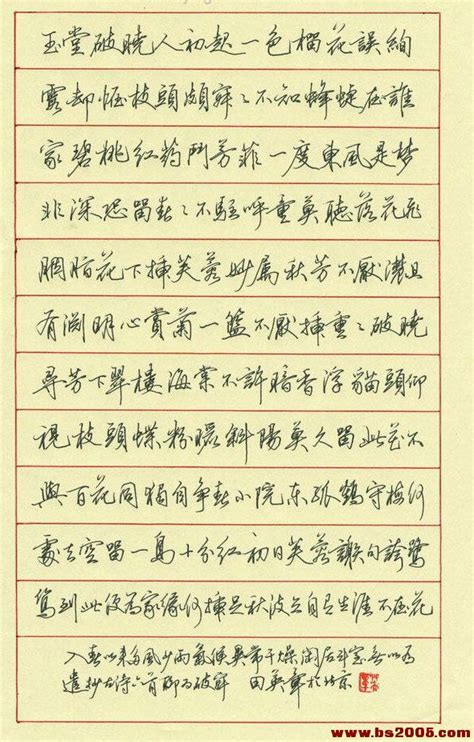 玉堂破曉人初起一色榴花誤絢
雲却恠枝頭頗寂〻不知蜂蜨在誰
家碧桃紅药鬥芳菲一度東風是梦
非深恐留春〻不駐呼童莫聽落花飛
胭脂花下插芙蓉妙屬秋芳不厭濃且
有渊明心賞菊一籃不厭插重〻破曉
尋芳下翠樓海棠不許暗香浮貓頭仰
視枝頭蝶粉暖斜陽莫久留此花不
與百花同獨自争春小院东孤鶴守梅何
處去空留一島十分红初日芙蓉謝句誇鷺
鸶到此便為家缘何插足秋波立自是生涯不在花
入春以来多風少雨氣候异常干燥闲居斗室無以為
遣抄古诗六首聊为破寂 田英章於北京
www.bs2005.com